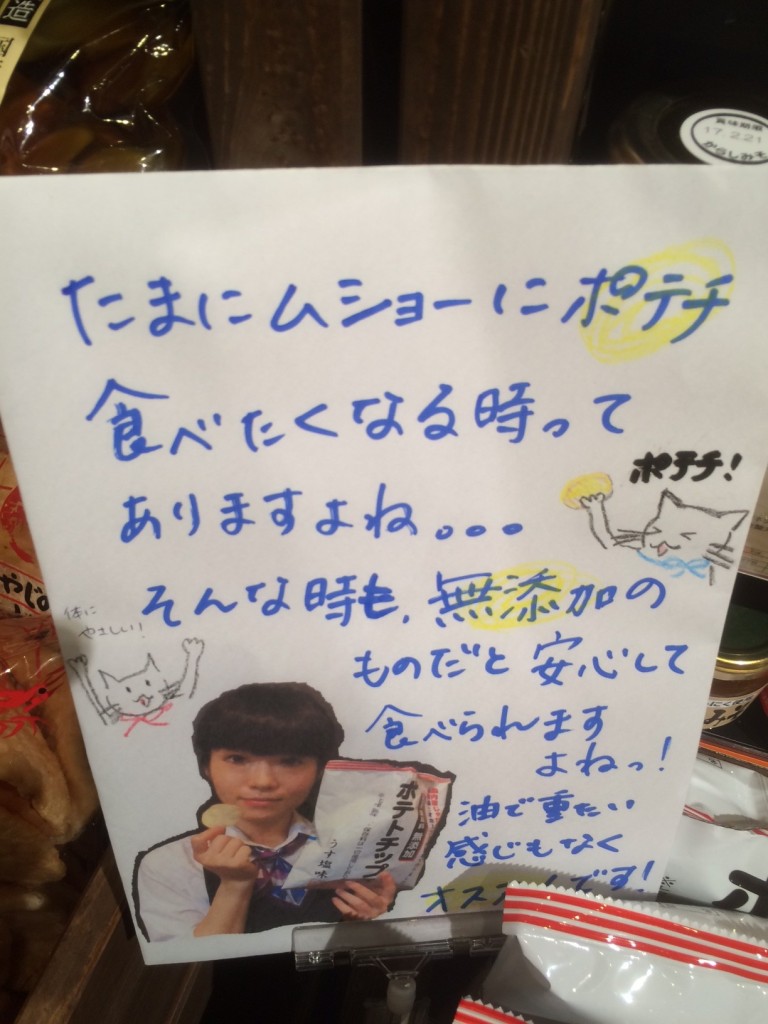 造
賞味期限
17.2.21
からしみそ
たまにムショーにポテチ
食べたくなる時って
ありますよね。。。
ポテチ!
そんな時も、無添加の
体に
やさしい!
ものだと安心して
食べられます
よねっ!
油で重たい
感じもなく
オススメです!
ポテトチップ
うす塩味